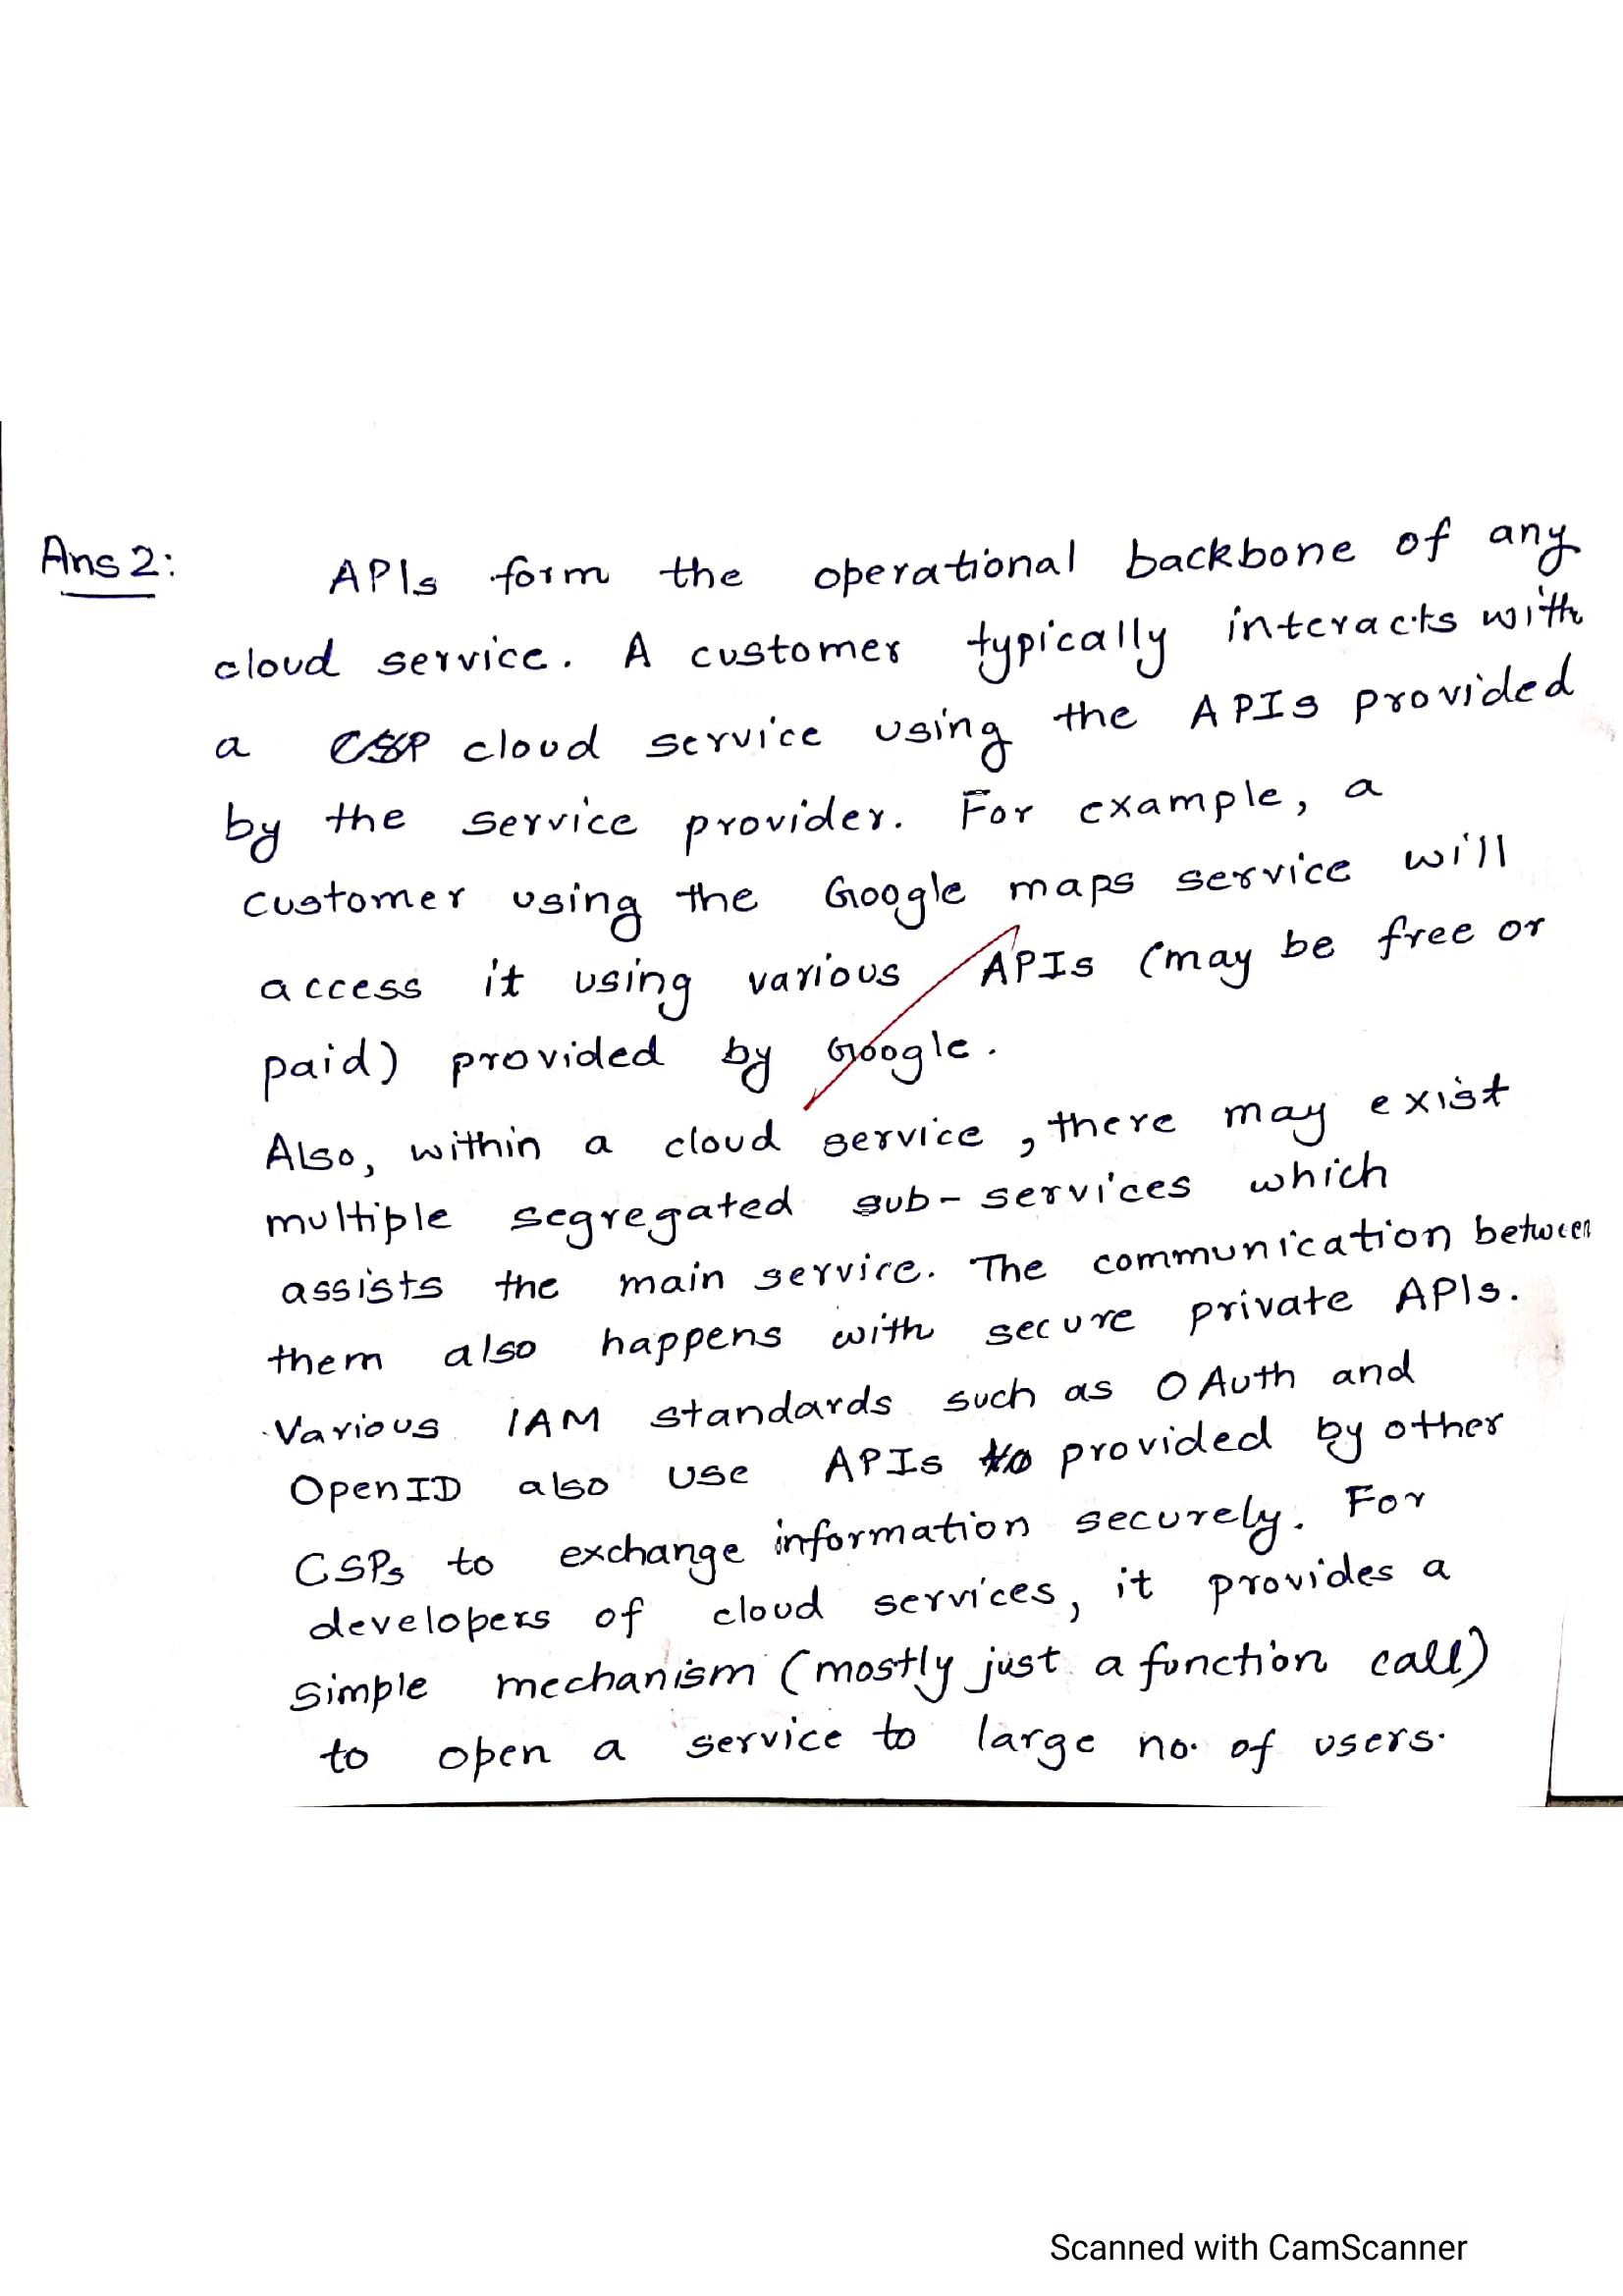 Ans 2:
APIs form the operational backbone of any
cloud service. A customer typically interacts with
a CSP cloud service using the APIs provided
by the service provider. For example, a
customer using the Google maps service will
access it using various APIs (may be free or
paid) provided by Google.
Also, within a cloud service, there may exist
multiple segregated sub-services which
assists the main service. The communication between
them also happens with secure private APIs.
Various IAM standards such as OAuth and
OpenID also use APIs to provided by other
CSPs to exchange information securely. For
developers of cloud services, it provides a
simple mechanism (mostly just a function call)
to open a service to large no. of users.
Scanned with CamScanner